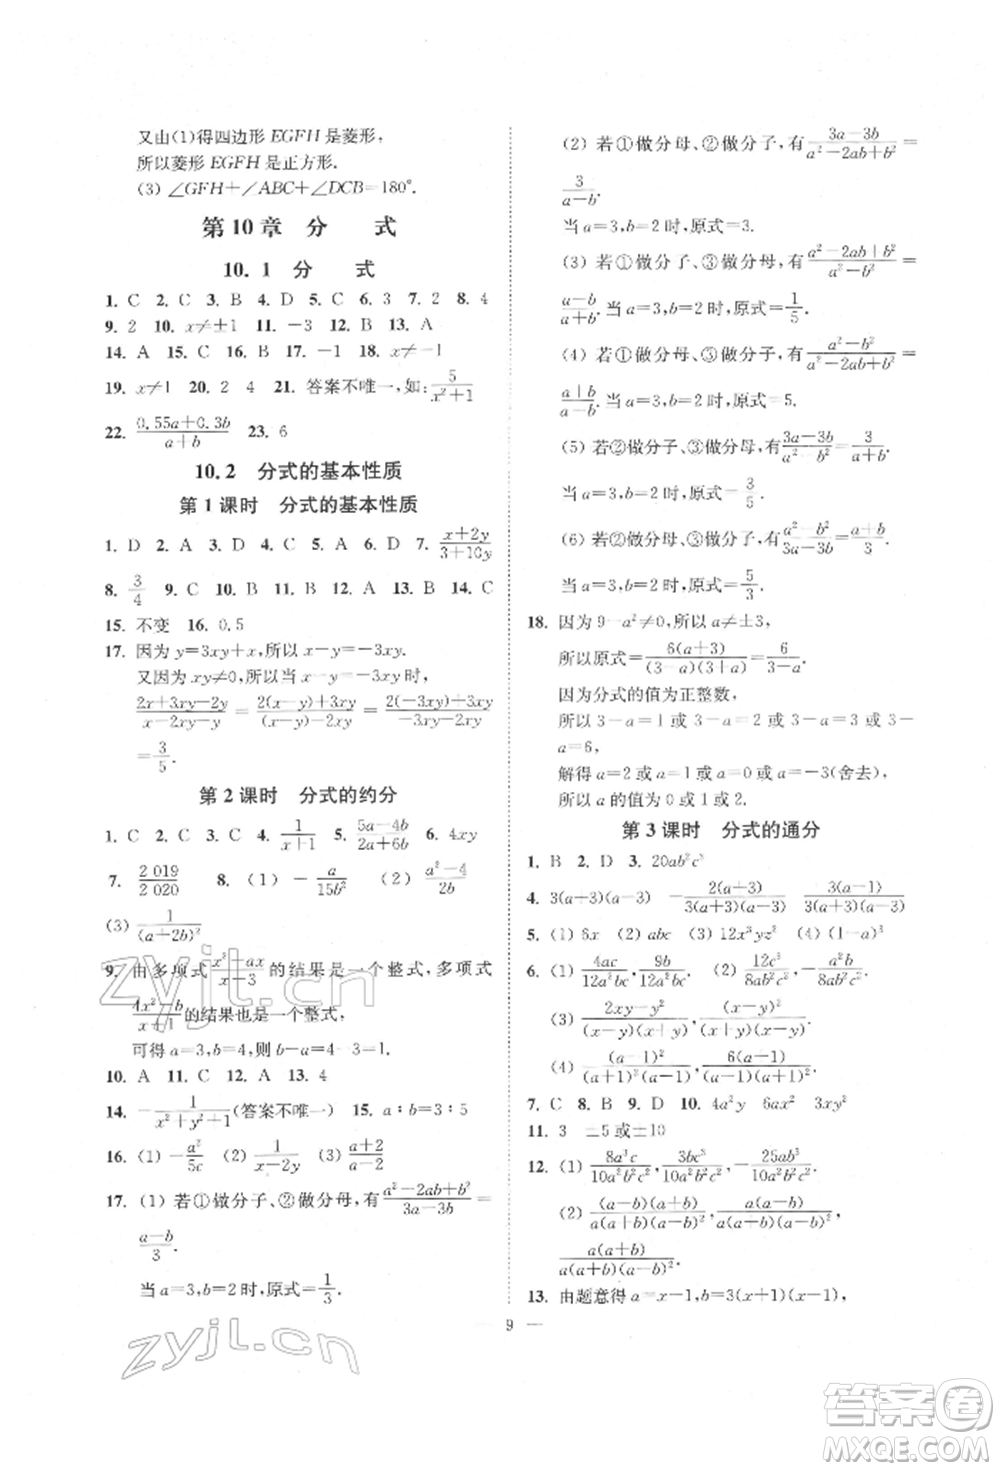 又由(1)得四边形 EGFH 是菱形,
所以菱形 EGFH 是正方形.
(3) ∠GFH+∠ABC+∠DCB=180°.
第 10 章 分 式
10. 1 分 式
1. C 2. C 3. B 4. D 5. C 6. 3 7. 2 8. 4
9. 2 10. x≠±1 11. -3 12. B 13. A
14. A 15. C 16. B 17. -1 18. x≠-1
19. x≠1 20. 2 4 21. 答案不唯一,如: 5/(x²+1)
22. (0.55a+0.3b)/(a+b) 23. 6
10. 2 分式的基本性质
第 1 课时 分式的基本性质
1. D 2. A 3. D 4. B 5. A 6. D 7. (x+2y)/(3+10y)
8. 3/4 9. C 10. B 11. A 12. A 13. B 14. C
15. 不变 16. 0.5
17. 因为 y=3xy+x,所以 x-y=-3xy.
又因为 xy≠0,所以
(2x+3xy-2y)/(x-2xy-y)=(2(x-y)+3xy)/((x-y)-2xy)=(2(-3xy)+3xy)/(-3xy-2xy)
=3/5.
第 2 课时 分式的约分
1. C 2. C 3. C 4. 1/(x+1) 5. (5a-4b)/(2a+6b) 6. 4xy
7. 2 019/2 020 8. (1) -a/(15b²) (2) (a²-4)/(2b)
(3) 1/(a+2b)²
9. 由多项式 (x²-ax)/(x-3) 的结果是一个整式,多项式
(4x²-b)/(x+1) 的结果也是一个整式,
可得 a=3,b=4,则 b-a=4-3=1.
10. A 11. C 12. A 13. 4
14. -1/(x²+y²+1)(答案不唯一) 15. a∶b=3∶5
16. (1) -a²/(5c) (2) 1/(x-2y) (3) (a+2)/(a-2)
17. (1) 若①做分子、②做分母,有 (a²-2ab+b²)/(3a-3b)=
(a-b)/3.
当 a=3,b=2 时,原式=1/3.
(2) 若①做分母、②做分子,有 (3a-3b)/(a²-2ab+b²)=
3/(a-b).
当 a=3,b=2 时,原式=3.
(3) 若①做分子、③做分母,有 (a²-2ab+b²)/(a²-b²)=
(a-b)/(a+b). 当 a=3,b=2 时,原式=1/5.
(4) 若①做分母、③做分子,有 (a²-b²)/(a²-2ab+b²)=
(a+b)/(a-b). 当 a=3,b=2 时,原式=5.
(5) 若②做分子、③做分母,有 (3a-3b)/(a²-b²)=3/(a+b).
当 a=3,b=2 时,原式=3/5.
(6) 若②做分母、③做分子,有 (a²-b²)/(3a-3b)=(a+b)/3.
当 a=3,b=2 时,原式=5/3.
18. 因为 9-a²≠0,所以 a≠±3,
所以原式=6(a+3)/((3-a)(3+a))=6/(3-a).
因为分式的值为正整数,
所以 3-a=1 或 3-a=2 或 3-a=3 或 3-
a=6,
解得 a=2 或 a=1 或 a=0 或 a=-3(舍去),
所以 a 的值为 0 或 1 或 2.
第 3 课时 分式的通分
1. B 2. D 3. 20ab²c³
4. 3(a+3)(a-3) -2(a+3)/(3(a+3)(a-3)) 3(a-1)/(3(a+3)(a-3))
5. (1) 6x (2) abc (3) 12x³yz² (4) (1-a)³
6. (1) 4ac/(12a²bc), 9b/(12a²bc) (2) 12c³/(8ab²c²), -a²b/(8ab²c²)
(3) (2xy-y²)/((x-y)(x+y)), (xy+y²)/((x+y)(x-y)).
(4) (a-1)²/((a+1)²(a-1)), 6(a+1)/((a+1)²(a-1)).
7. C 8. B 9. D 10. 4a²y 6ax² 3xy²
11. 3 ±5或±10
12. (1) 8a³c/(10a²b²c²), 3bc³/(10a²b²c²), -25ab³/(10a²b²c²).
(2) (a-b)(a-b)/(a(a+b)(a-b)²), (a+b)(a-b)/(a(a+b)(a-b)²),
a(a+b)/(a(a+b)(a-b)²).
13. 由题意得 a=x-1,b=3(x+1)(x-1),
— 9 —
zyjl.cn
zyjl.cn
答案圈
MXQE.COM